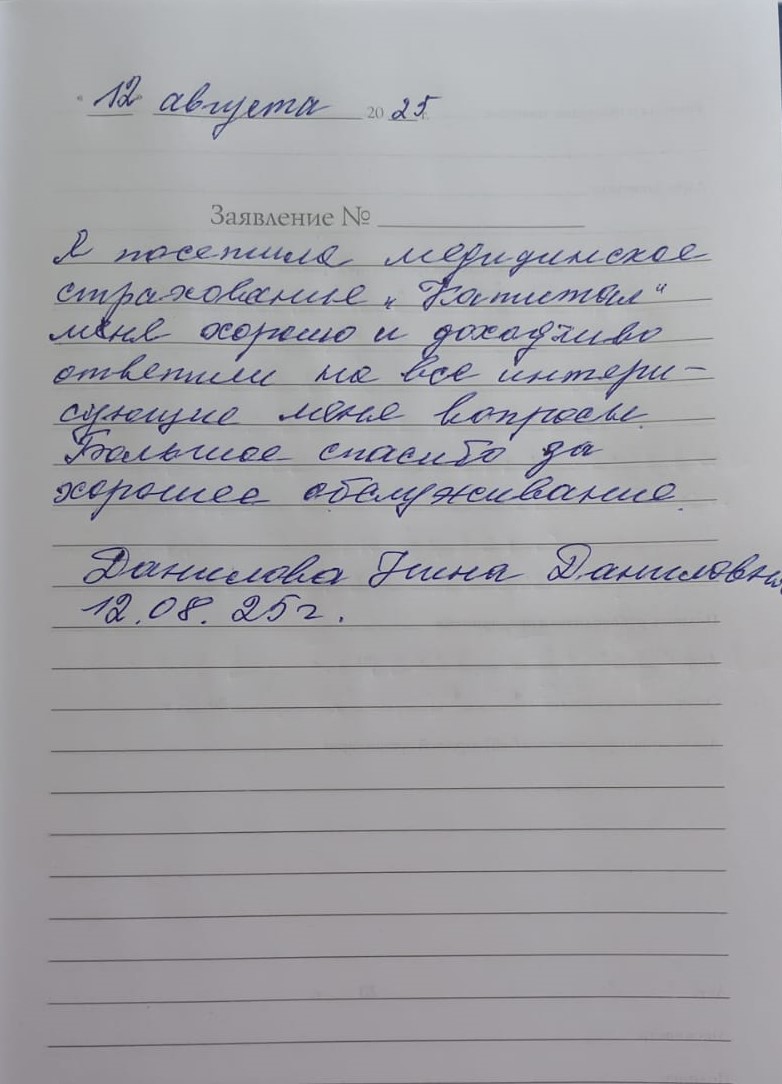 " 12 " августа 2025 г.
Заявление №
Я посетила медицинское
страхование „Капитал"
меня хорошо и доходчиво
ответили на все интери-
сующие меня вопросы.
Большое спасибо за
хорошее обслуживание.
Данилова Нина Даниловна
12.08.25г.